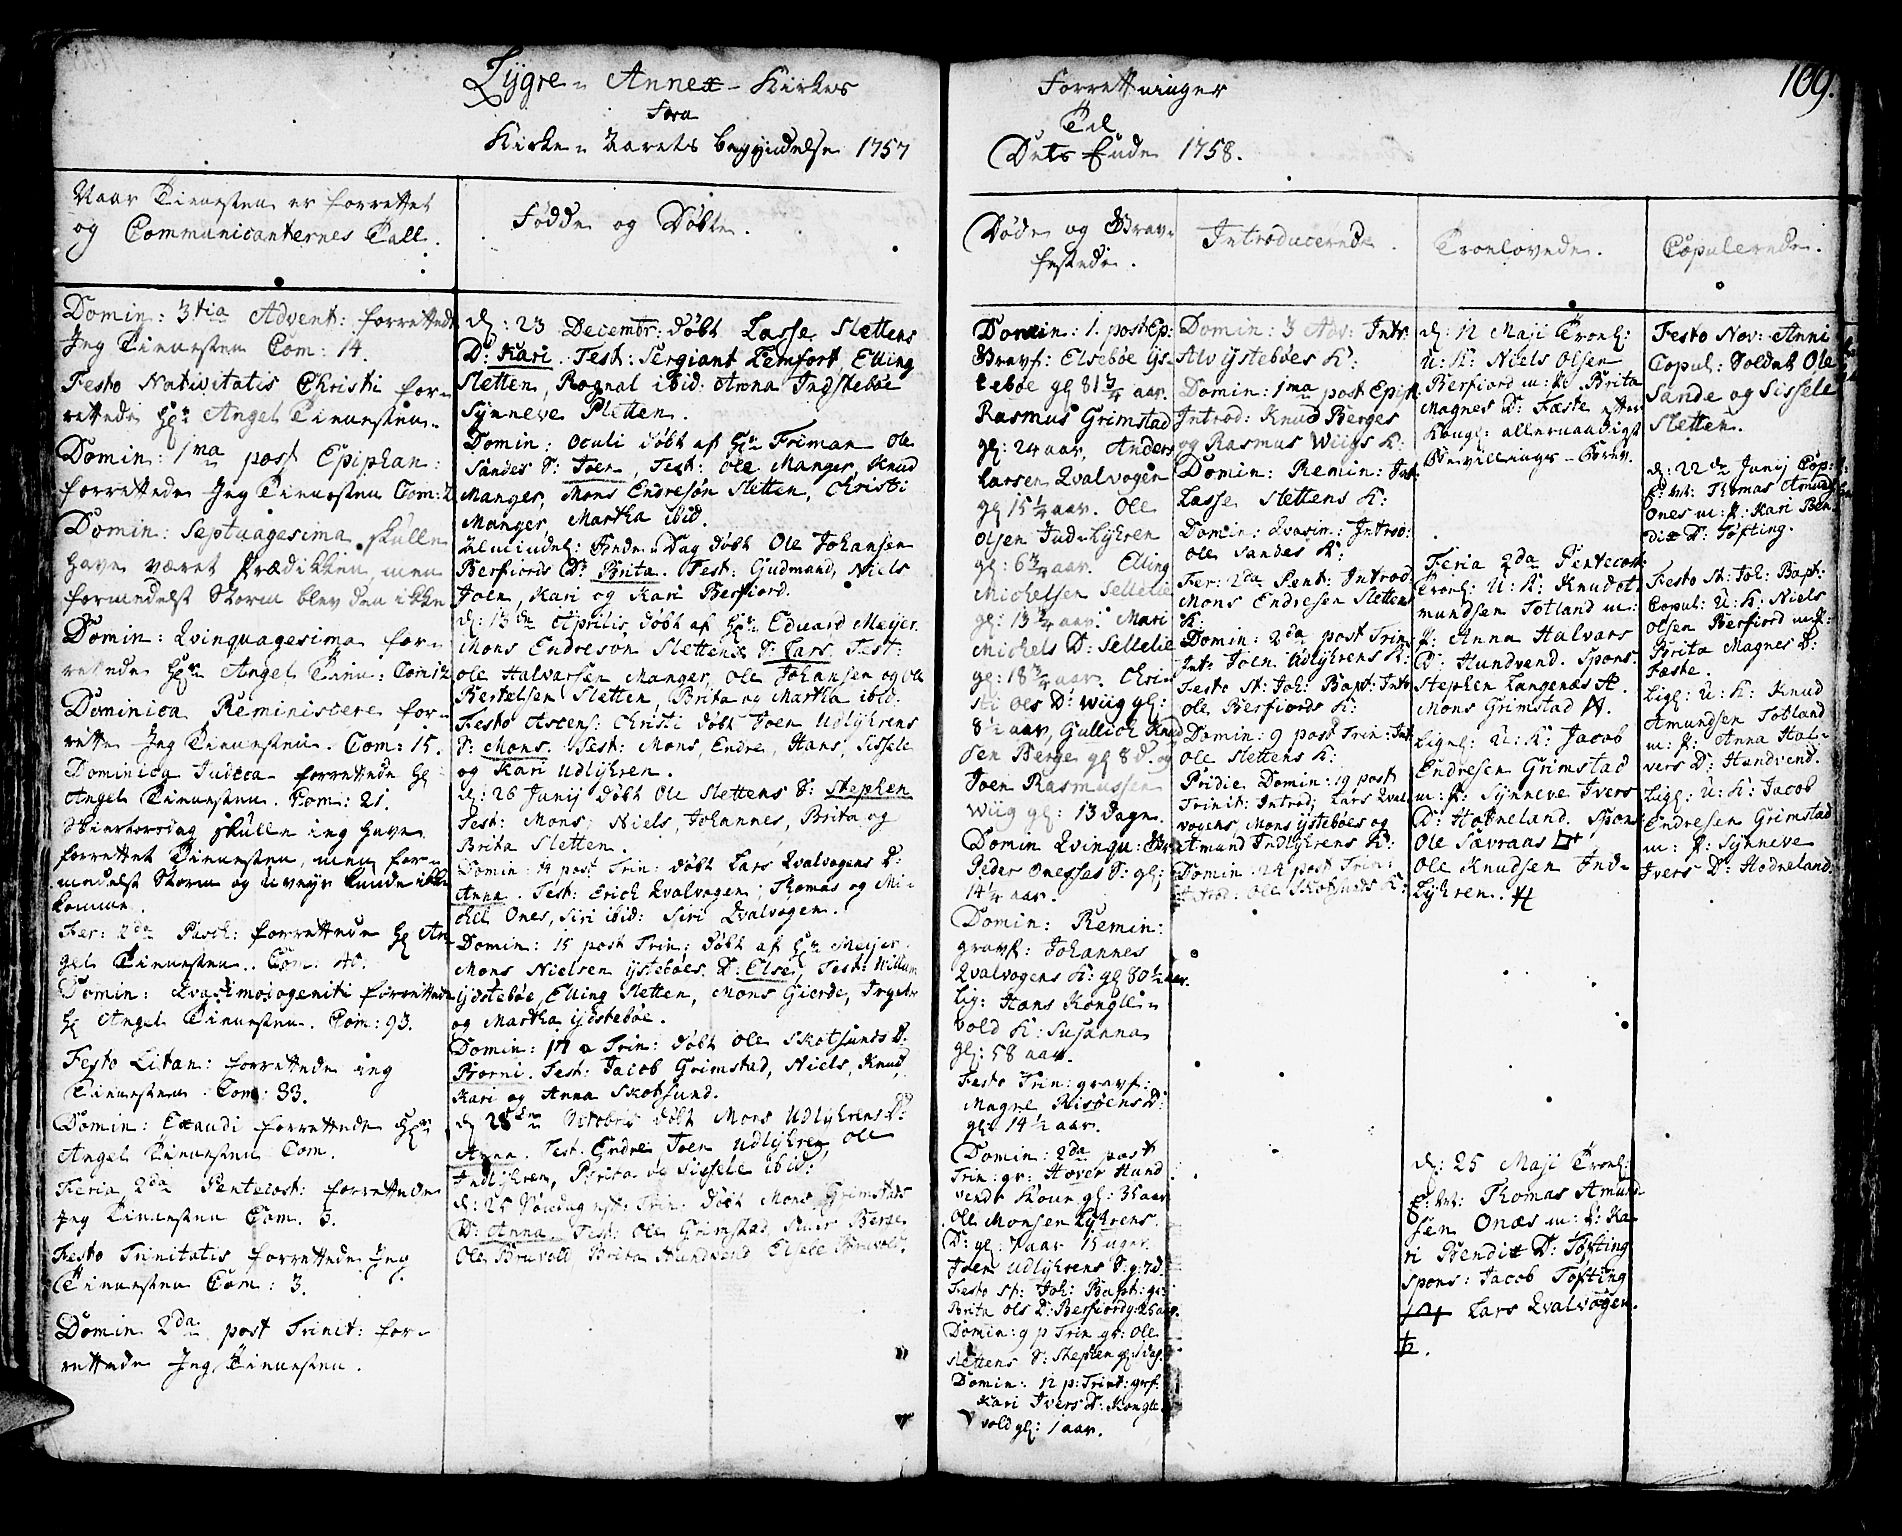 Lygre - Annex - Kirkes
Fora
Kirke - Aarets begyndelse 1757
Forrettninger
Til
Dets Ende 1758.
109.
Naar Tienesten er forrettet
og Communicanternes Tall.
Domin: 3tia Advent: forrettede
Jeg Tienesten Com: 14.
Festo Nativitatis Christi for-
rettede Hr Angel Tienesten.
Domin: 1ma post Epiphan:
forrettede Jeg Tienesten Com:
Domin: Septuagesima skulle
have været Prædikken, men
formedelst Storm blev den ikke
Domin: Qvinquagesima for-
rettede Hr Angel Tien: Com:
Dominica Reministere for-
rette Jeg Tienesten. Com: 15.
Dominica Judica forrettede Hr
Angel Tienesten. Com: 21.
Skiertorsdag skulle ieg have
forrettet Tienesten, men for-
medelst Storm og uveyr kunde ikke
komme.
Fer: 2da Pasch: forrettede Hr An-
gel Tienesten. Com: 40.
Domin: Qvasimodogeniti forrettede
Hr Angel Tienesten. Com: 93.
Festo Litan: forrettede ieg
Tienesten. Com: 33.
Domin: Exaudi forrettede Hr
Angel Tienesten Com.
Feria 2da Pentecost: forrettede
Jeg Tienesten Com. 3.
Festo Trinitatis forrettede Jeg
Tienesten Com: 3.
Domin 2da post Trinit: for-
rettede Jeg Tienesten.
Fødde og Døbte.
d: 23 Decembr: døbt Lasse Slettens
D: Kari. Test: Sergiant Lemfort, Elling
Sletten, Rognal ibid: Anna Indstebøe
Synneve Sletten.
Domin: Oculi døbt af Hr Friman Ole
Sandes S: Joen, Test: Ole Manger, Knud
Manger, Mons Endresøn Sletten, Christi
Manger, Martha ibid.
Almindel: Bede-Dag døbt Ole Johansen
Berfiords D: Brita. Test: Gudmand, Niels
Joen, Kari og Kari Berfiord.
d: 13de Aprilis, døbt af Hr Eduard Meijer
Mons Endreson Slettens S: Lars. Test:
Ole Halvarsen Manger, Ole Johansen og Ole
Bertelsen Sletten, Brita og Martha ibid.
Festo Ascens: Christi døbt Joen Udlykrens
S: Mons. Test: Mons, Endre, Hans, Sissele
og Kari Udlykren.
d: 26 Junij døbt Ole Slettens S: Stephen
Test: Mons, Niels, Johannes, Brita og
Brita Sletten.
Domin: 14 post Trin: døbt Lars Qvalvogens D:
Anna. Test: Erich Qvalvogen, Thomas og Mi-
chel Ones, Siri ibid: Siri Qvalvogen.
Domin: 15 post Trin: døbt af Hr Meijer
Mons Nielsen Ystebøes D: Else, Test: Willum
Ydstebøe, Elling Sletten, Mons Gierde,
og Martha Ydstebøe.
Domin: 17 p Trin: døbt Ole Skotsunds D:
Børni. Test: Jacob Grimstad, Niels, Knud,
Kari og Anna Skotsund.
d 28de Octobris døbt Mons Udlykrens D:
Anna. Test. Endre, Joen Udlykren, Ole
Indlykren, Brita og Sissele ibid:
d: 25 Søndag post: Trin: døbt Mons Grimstads
D: Anna. Test: Ole Grimstad, Siver Berge
Ole Bruvoll Brita Hundvend Bruvoll.
Døde og Grav-
festede.
Domin: 1. post Ep:
Gravf: Elsebøe Ys-
tebøe gl 81 3/4 aar.
Rasmus Grimstad
gl: 24 aar, Anders
Larsen Qvalvogen
gl 15 1/2 aar. Ole
Olsen Ind-Lykren
gl: 6 3/4 aar. Elling
Michelsen Sellelie
gl: 13 1/4 aar. Mari
Michels D: Sellelie
gl: 18 3/4 aar. Chri-
sti Ols D: Wiig gl:
8 1/2 aar, Gullich Knud
sen Berge gl 8 d. og
Joen Rasmussen
Wiig gl: 13 dage.
Domin Qvinqu: Gr:
Peder Oneses S: gl;
14 1/4 aar.
Domin: Remin:
gravf: Johannes
Qvalvogens K: gl 80 1/2 aar.
Lig: Hans Kongle-
vold K: Susanna
gl: 58 aar.
Festo Trin: gravf:
Magne Risøens D:
gl: 14 1/2 aar.
Domin: 2da post
Trin: gr: Hover Hund
vends Kone gl: 35 aar
Ole Monsen Lykrens
D: gl: 7 aar 15 uger.
Joen Udlykrens S: g: 7d.
Festo St: Joh: Bapt: gr:
Brita Ols D: Berfiord gl: 25 aar.
Domin: 9 p Trin gr: Ole
Slettens S: Stephen gl: 5 dag.
Domin: 12 p: Trin: grf:
Kari Ivers D: Kongle-
vold gl: 1 aar.
Introducerede.
Domin: 3 Adv: Intr:
Alv Ystebøes K:
Domin: 1ma post Epiph
Introd: Knud Berges
og Rasmus Wiigs K:
Domin: Remin: Int:
Lasse Slettens K:
Domin: Qvasim: Introd:
Ole Sandes K:
Fer: 2da Pent: Introd:
Mons Endresen Slettens
K:
Domin: 2da post Trin
Int: Joen Udlykrens K:
Festo St: Joh: Bapt: Intr
Ole Berfiords K:
Domin: 9 post Trin: Int
Ole Slettens K:
Pridie Domin: 19 post
Trinit: Introd; Lars Qval
vogens, Mons Ystebøes og
Amund Indlykrens K:
Domin: 24 post Trin:
Introd: Ole Skotsunds K:
Troelovede.
d: 12 Maji Troel:
U: K: Niels Olsen
Berfiord m: P Brita
Magnes D: Fæste efter
Kongl: allernaadigst
Bevillings-Brev.
Feria 2da Pentecost
Troel: U: K: Knud Ot
mundsen Totland m:
P: Anna Halvars
D: Hundvend. Spons:
Stephen Langenæs
Mons Grimstad
Ligel: U: K: Jacob
Endresen Grimstad
m: P: Synneve Ivers
D: Hodneland. Spon:
Ole Sævraas
Ole Knudsen Ind-
Lykren.
d: 25 Maji Troel:
E: M: Thomas Amund
sen Onæs m: P: Ka-
ri Bendix D: Tøfting
Spons: Jacob Tøfting
Lars Qvalvogen.
Copulerede.
Festo Nov: Anni
Copul: Soldat Ole
Sande og Sissele
Sletten.
d: 22de Junij Cop:
E: M: Thomas Amund
Ones m: P: Kari Ben
dix D: Tøfting.
Festo St: Joh: Bapt:
Copul: U: K: Niels
Olsen Berfiord m: P:
Brita Magnes D:
Fæste.
Ligl: U: K: Knud
Amundsen Totland
m: P: Anna Hal-
vers D: Hundvend.
Ligl: U: K: Jacob
Endresen Grimstad
m: P: Synneve
Ivers D: Hodneland.